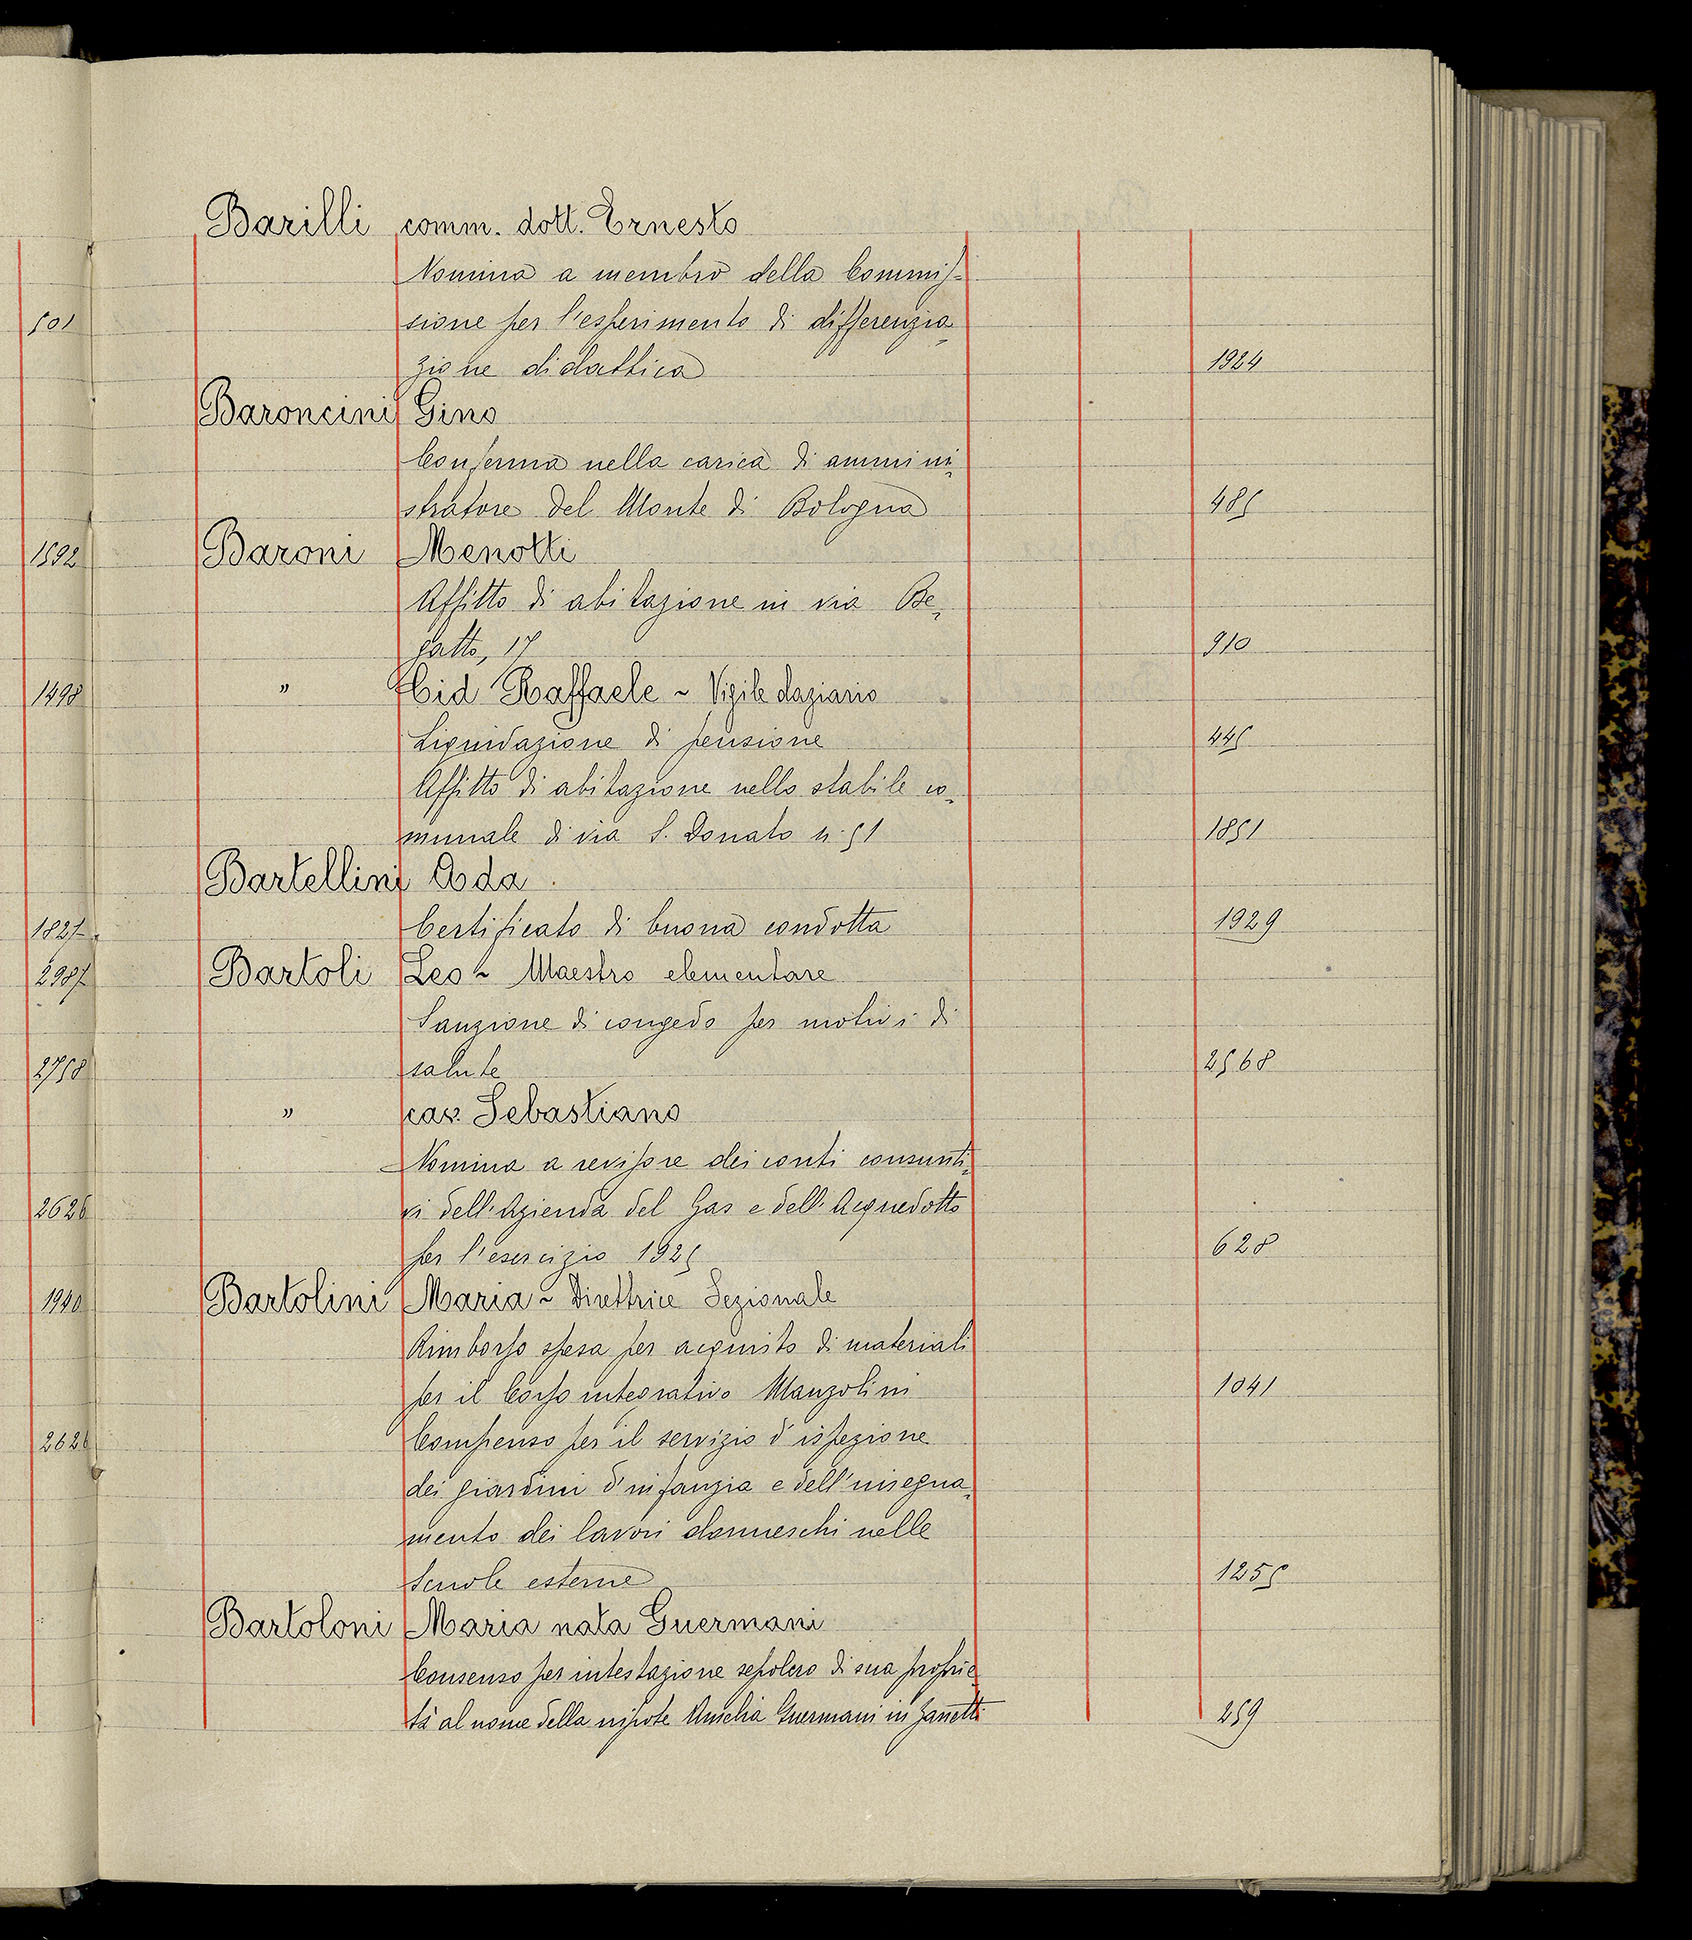 Barilli comm. dott. Ernesto
Nomina a membro della Commis-
501
sione per l'esperimento di differenzia-
zione didattica 1924
Baroncini Gino
Conferma nella carica di ammini-
stratore del Monte di Bologna 485
1592
Baroni Menotti
Affitto di abitazione in via Be-
gatto, 17 910
1498
" Cid Raffaele ~ Vigile daziario
Liquidazione di pensione 445
Affitto di abitazione nello stabile co-
munale di via S. Donato n. 51 1851
Bartellini Ada
1827
Certificato di buona condotta 1929
2987
Bartoli Leo ~ Maestro elementare
Sanzione di congedo per motivi di
2758
salute 2568
" cav. Sebastiano
Nomina a revisore dei conti consunti-
2626
vi dell'Azienda del Gas e dell'Acquedotto
per l'esercizio 1925 628
1940
Bartolini Maria ~ Direttrice Sezionale
Rimborso spesa per acquisto di materiali
per il Corso integrativo Manzolini 1041
2626
Compenso per il servizio d'ispezione
dei giardini d'infanzia e dell'insegna-
mento dei lavori donneschi nelle
Scuole esterne 1255
Bartoloni Maria nata Guermani
Consenso per intestazione sepolcro di sua proprie-
tà al nome della nipote Amelia Guermani in Zanetti 259